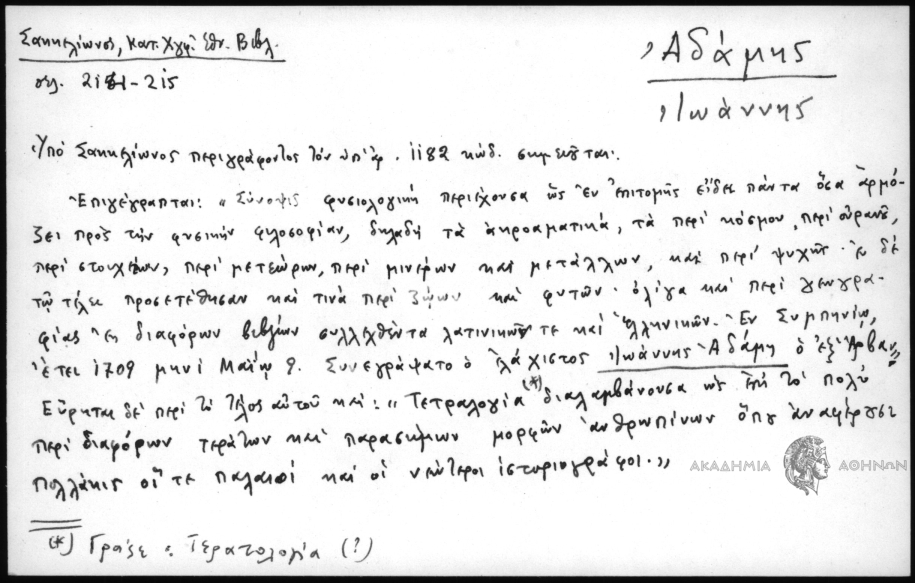 Σακκελίωνος, Κατ. Χγφ. Ἐθν. Βιβλ.
σελ. 214-215
Ἀδάμης
Ἰωάννης
Ὑπὸ Σακκελίωνος περιγράφοντος τὸν ὑπ' ἀρ. 1182 κώδ. σημειοῦται.
Ἐπιγέγραπται: "Σύνοψις φυσιολογικὴ περιέχουσα ὡς ἐν ἐπιτομῆς εἴδει πάντα ὅσα ἁρμό-
ζει πρὸς τὴν φυσικὴν φιλοσοφίαν, δηλαδὴ τὰ ἀκροαματικά, τὰ περὶ κόσμου, περὶ οὐρανοῦ,
περὶ στοιχείων, περὶ μετεώρων, περὶ μινερῶν καὶ μετάλλων, καὶ περὶ ψυχῆς· ἐν δὲ
τῷ τέλει προσετέθησαν καὶ τινὰ περὶ ζώων καὶ φυτῶν· ὀλίγα καὶ περὶ γεωγρα-
φίας ἐκ διαφόρων βιβλίων συλλεχθέντα λατινικῶν τε καὶ ἑλληνικῶν. Ἐν Συμπηνίῳ,
ἔτει 1709 μηνὶ Μαΐῳ 9. Συνεγράψατο ὁ ἐλάχιστος Ἰωάννης Ἀδάμη ὁ ἐξ Ἀρβαν,,
Εὕρηται δὲ περὶ τὸ τέλος αὐτοῦ καί: "Τετραλογία (*) διαλαμβάνουσα ὡς ἐπὶ τὸ πολὺ
περὶ διαφόρων τεράτων καὶ παρασήμων μορφῶν ἀνθρωπίνων ὅπου ἀναφέρουσι
πολλάκις οἵ τε παλαιοὶ καὶ οἱ νεώτεροι ἱστοριογράφοι.,,
ΑΚΑΔΗΜΙΑ ΑΘΗΝΩΝ
(*) Γράψε: Τερατολογία (?)